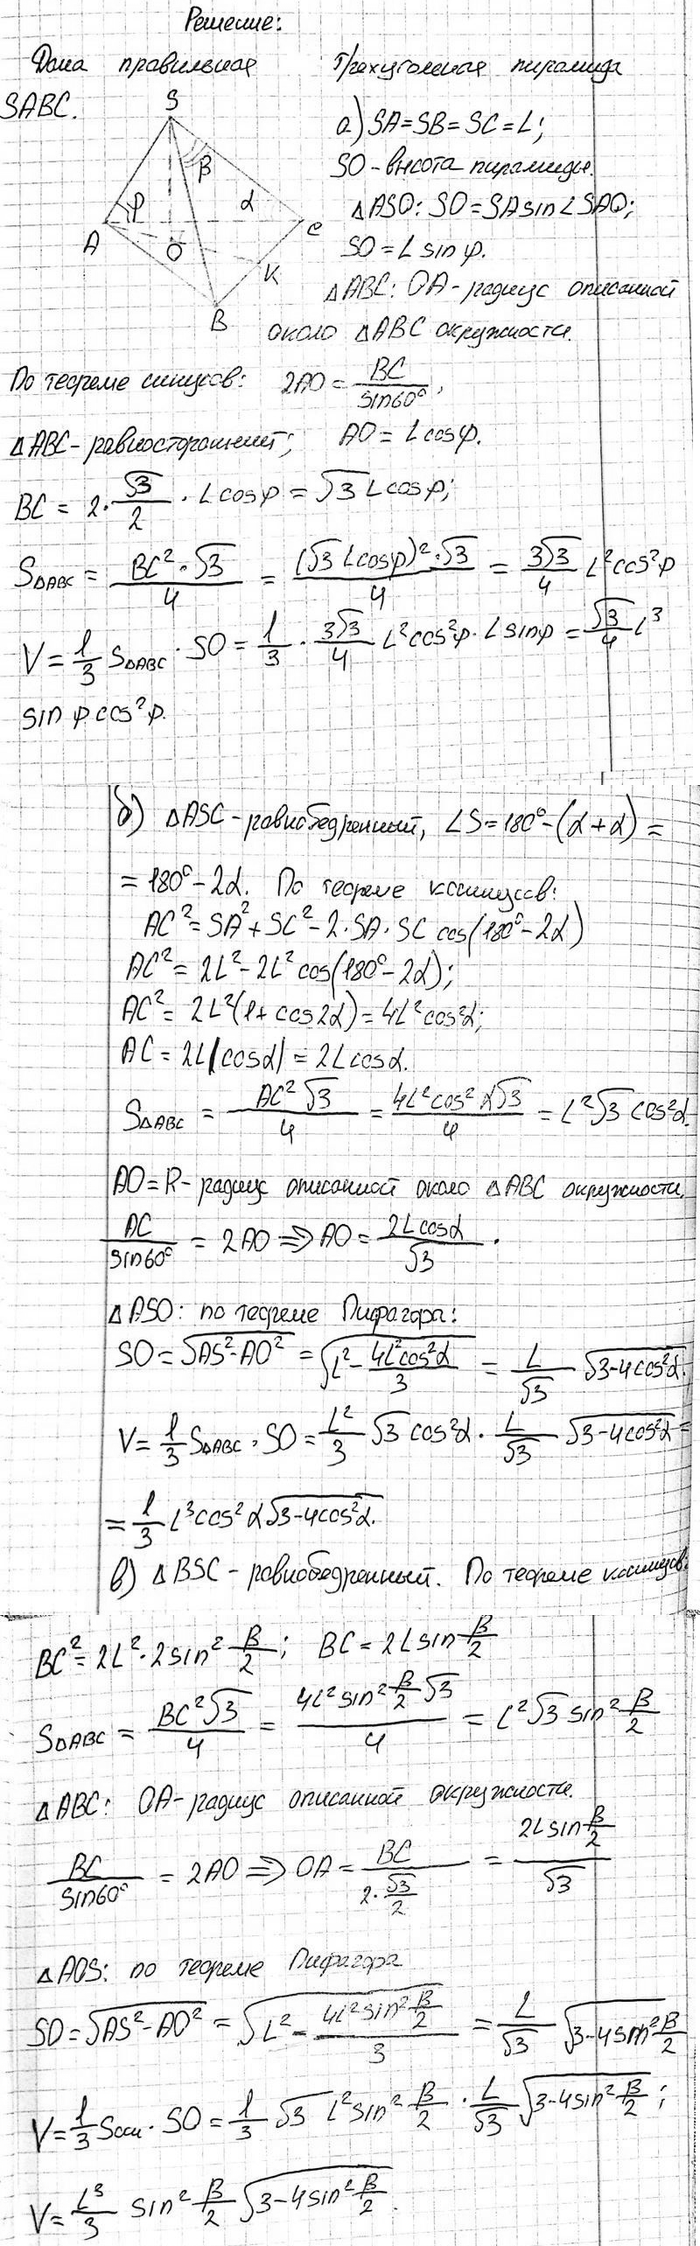 Решение:
Дана правильная треугольная пирамида
SABC.
S
β
φ
α
A
C
O
K
B
а) SA=SB=SC=L;
SO-высота пирамиды.
△ASO: SO=SA sin∠SAO;
SO=L sin φ.
△ABC: OA-радиус описанной
около △ABC окружности.
По теореме синусов: 2AO = BC/sin60°,
△ABC-равносторонний; AO = L cosφ.
BC = 2·√3/2 · L cosφ = √3 L cosφ;
S△ABC = BC²·√3/4 = (√3 L cosφ)²·√3/4 = 3√3/4 L² cos²φ
V = 1/3 S△ABC · SO = 1/3 · 3√3/4 L² cos²φ · L sinφ = √3/4 L³
sin φ cos²φ.
б) △ASC-равнобедренный, ∠S=180°-(α+α)=
=180°-2α. По теореме косинусов:
AC²=SA²+SC²-2·SA·SC cos(180°-2α)
AC²=2L²-2L² cos(180°-2α);
AC²=2L²(1+cos2α)=4L²cos²α;
AC=2L|cosα|=2L cosα.
S△ABC = AC²√3/4 = 4L²cos²α√3/4 = L²√3 cos²α.
AO=R-радиус описанной около △ABC окружности,
AC/sin60° = 2AO ⇒ AO = 2L cosα/√3.
△ASO: по теореме Пифагора:
SO=√(AS²-AO²) = √(L²-4L²cos²α/3) = L/√3 √(3-4cos²α).
V=1/3 S△ABC · SO = L²/3 √3 cos²α · L/√3 √(3-4cos²α) =
=1/3 L³cos²α√(3-4cos²α).
в) △BSC-равнобедренный. По теореме косинусов:
BC²=2L²·2sin² β/2; BC=2L sin β/2
S△ABC = BC²√3/4 = 4L² sin² β/2 √3/4 = L²√3 sin² β/2
△ABC: OA-радиус описанной окружности.
BC/sin60° = 2AO ⇒ OA = BC/(2·√3/2) = 2L sin β/2/√3
△AOS: по теореме Пифагора
SO=√(AS²-AO²) = √(L²-4L² sin² β/2/3) = L/√3 √(3-4sin² β/2)
V=1/3 Sосн · SO = 1/3 √3 L² sin² β/2 · L/√3 √(3-4sin² β/2);
V=L³/3 sin² β/2 √(3-4sin² β/2).